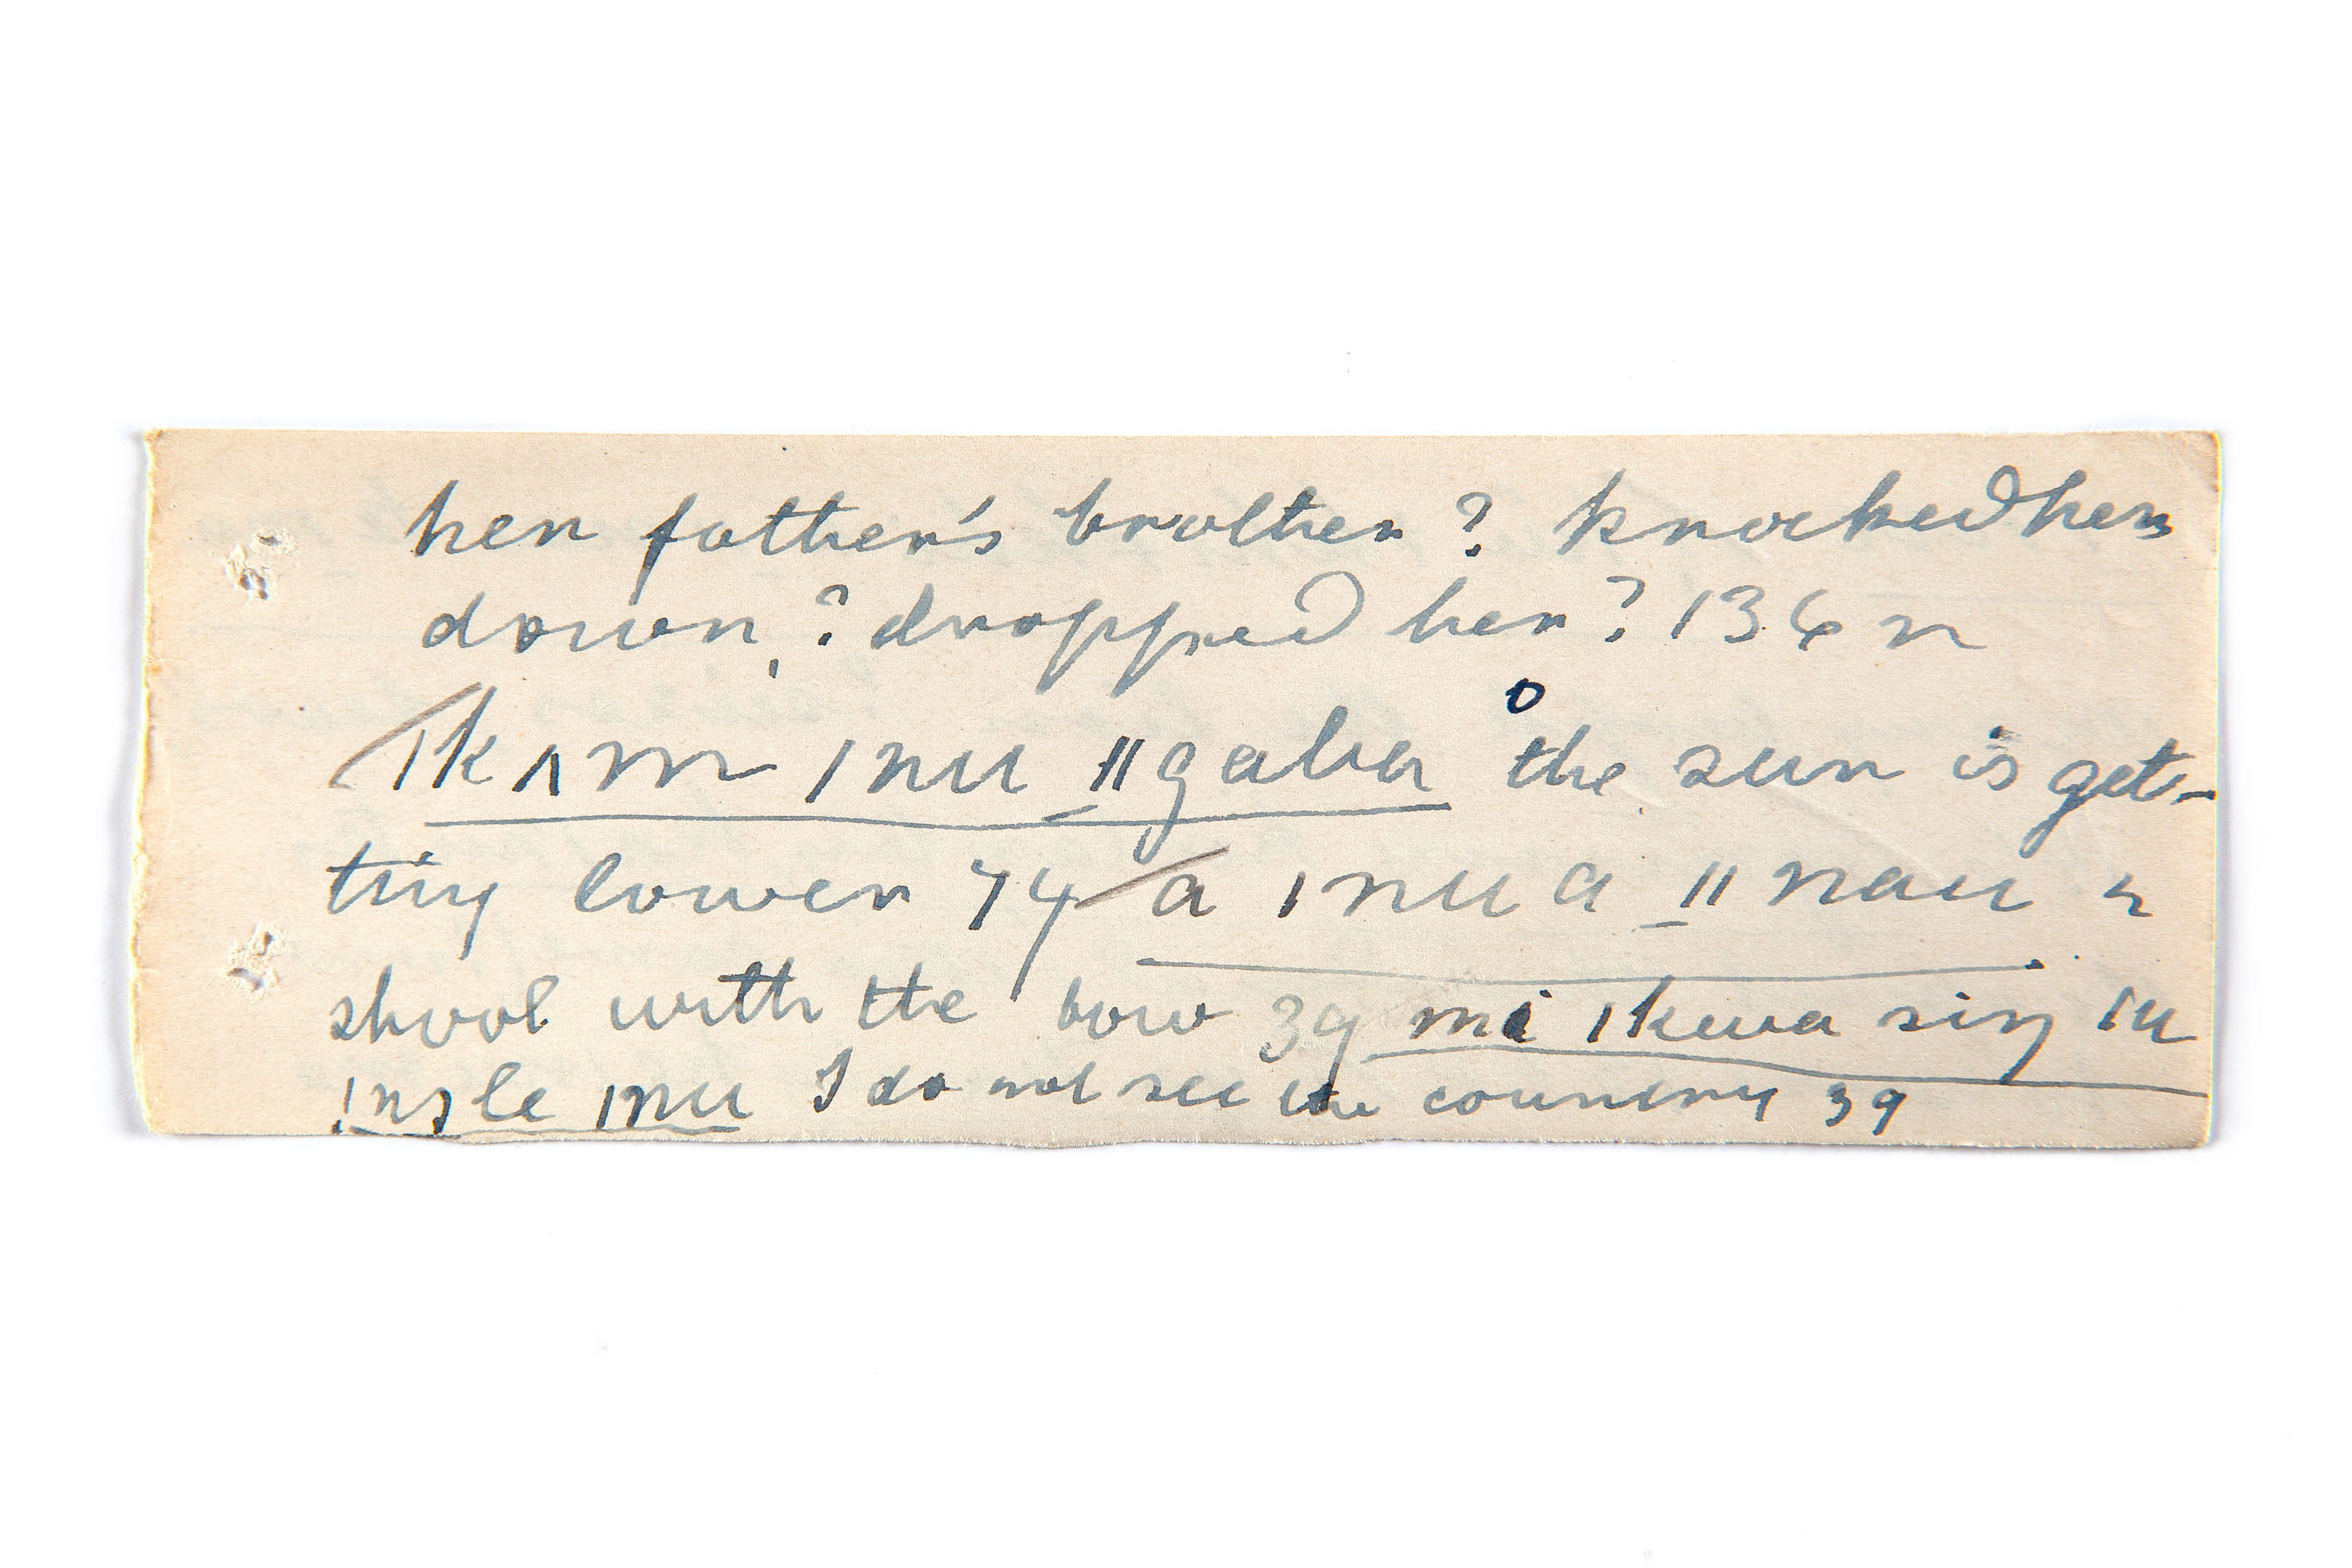 her father's brother ? knocked her
down, ? dropped her ? 136 n
ǀkʌm ǀnu ǁgaba the sun is get-
ting lower 74 a ǀnu a ǁnau
shoot with the bow 39 mi ǀkwa siŋ ǀu
ǃnʒle ǀnu I do not see the country 39